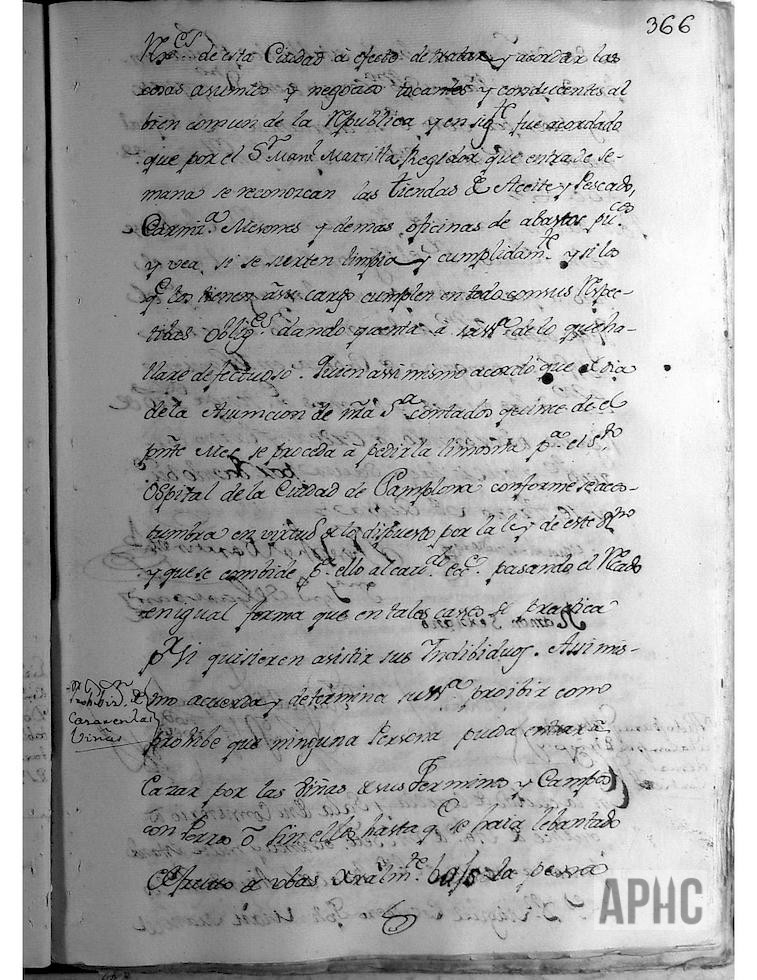 366
de esta Ciudad a efecto de tratar y acordar las
cosas asumtos y negocios tocantes y conducentes al
bien comun de la Republica y en sigte fue acordado
que por el Sr Manl Marcilla Regidor que entra de se-
mana se reconozcan las tiendas de Aceite y Pescado,
Carniza Mesones y demas oficinas de abastos pucos
y vea si se surten limpia y cumplidamte y si lo
qe los tienen a su cargo cumplen en todo con sus Respec-
tibas obliges dando quenta a de lo que ha-
llare defectuoso. Quien assi mismo acordo que el dia
de la Asumcion de nra Sra contados quince de el
pnte Mes se proceda a pedir la limosna pa el sto
ospital de la Ciudad de Pamplona conforme se acos-
tumbra en virtud de lo dispuesto por la ley de este Rno
y que se combide pa ello al ecco pasando el Rcado
en igual forma que en tales casos se practica
pr si quisieren asistir sus Indibiduos. Asi mis-
mo acuerda y determina proibir como
prohibe que ninguna Persona pueda entrar a
Cazar por las viñas de sus Terminos y Campos
con Perro o sin ello hasta qe se haia lebantado
el fruto de ubas bajo la pena
prohibir el
Cazar en las
viñas
APHC